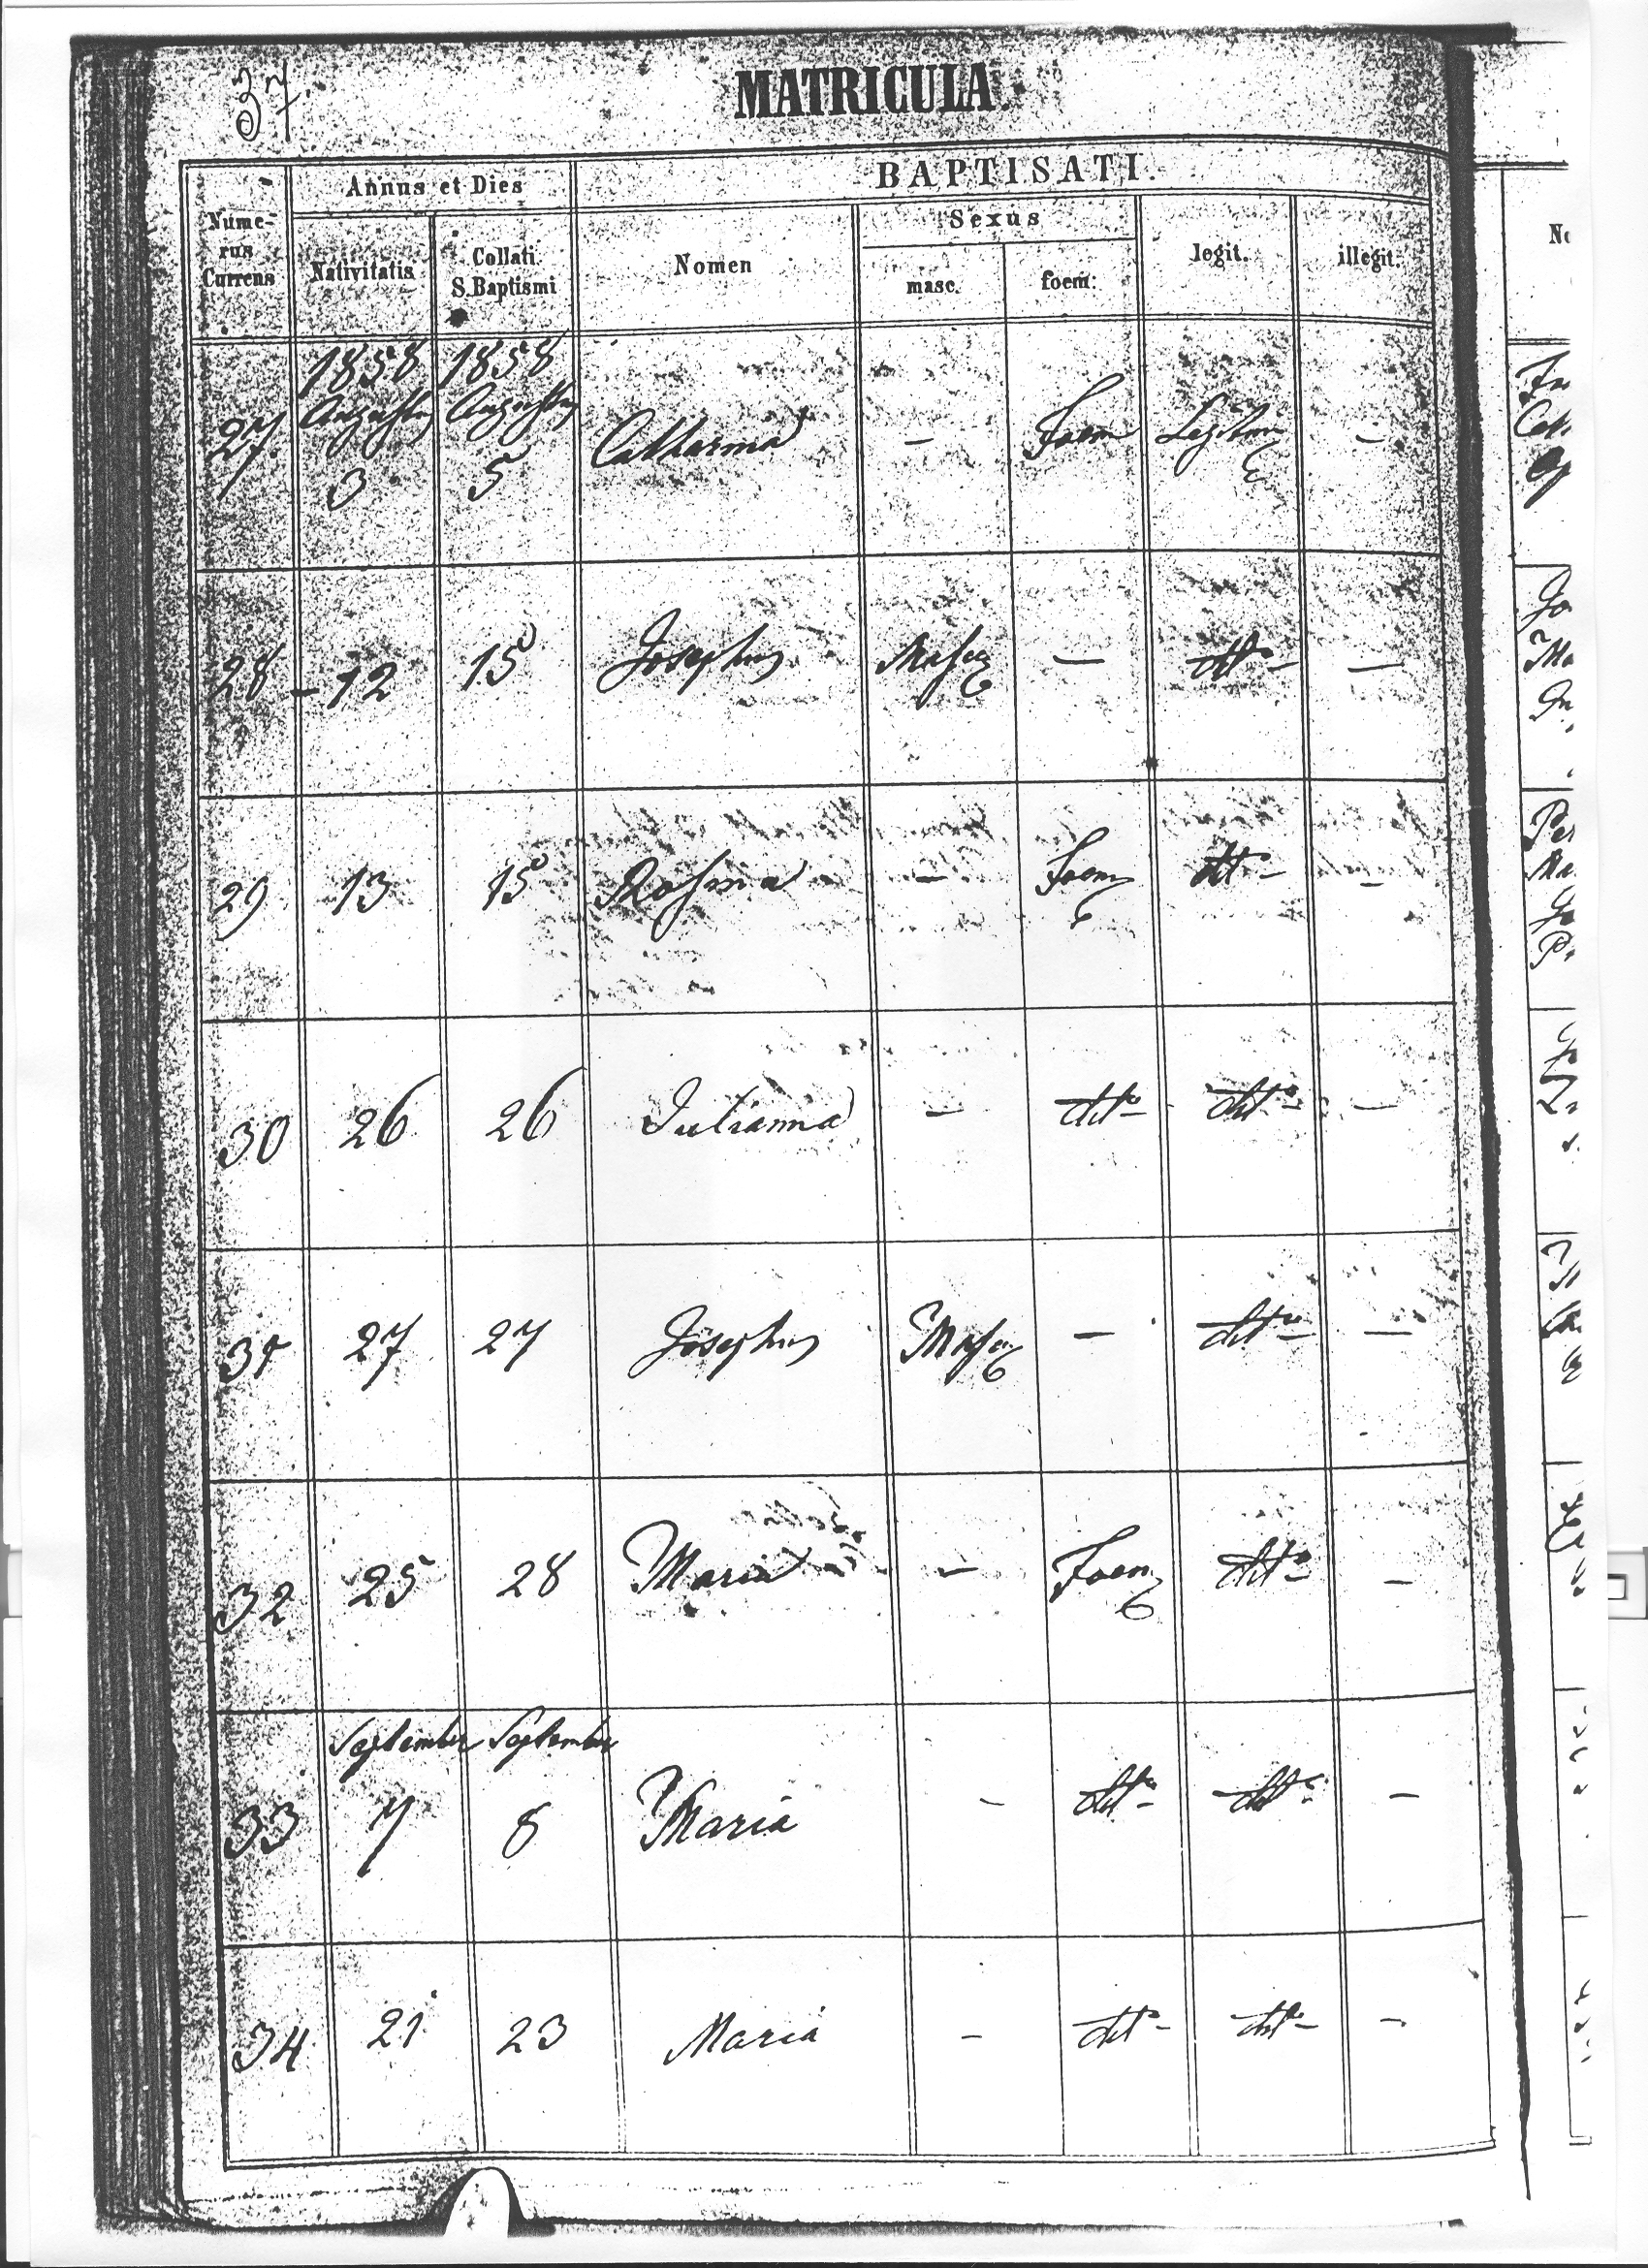 37.
MATRICULA.
Nume-
rus
Currens
Annus et Dies
Nativitatis
Collati
S. Baptismi
BAPTISATI.
Nomen
Sexus
masc.
foem:
legit.
illegit:
27. 1858 Augustus 3 1858 Augustus 5 Catharina – Foem Legitim –
28 – 12 15 Josephus Masc – ditto –
29 13 15 Rosina – Foem ditto –
30 26 26 Julianna – ditto ditto –
31 27 27 Josephus Masc – ditto –
32 25 28 Maria – Foem ditto –
33 September 7 September 8 Maria – ditto ditto –
34 21 23 Maria – ditto ditto –